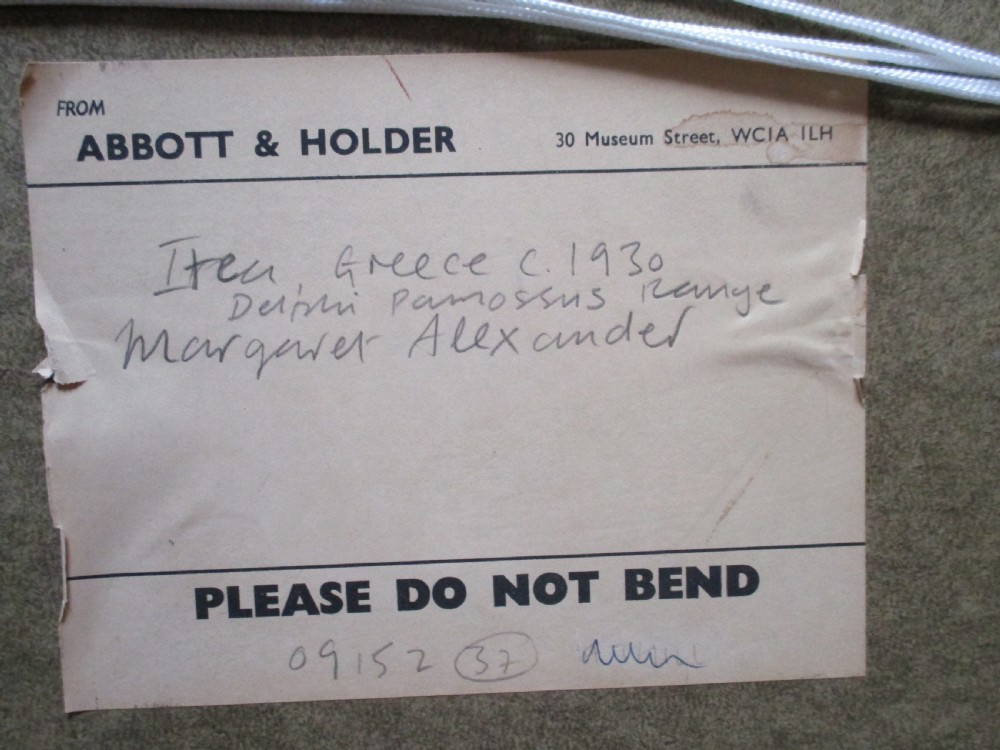 FROM
ABBOTT & HOLDER
30 Museum Street, WC1A 1LH
Itea, Greece c.1930
Delphi Parnossus Range
Margaret Alexander
PLEASE DO NOT BEND
09152 37